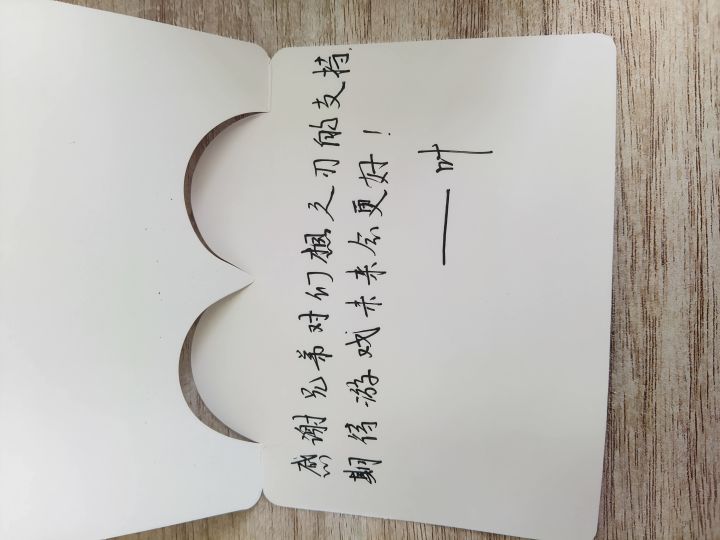 感谢兄弟对们枫之刃的支持,
期待游戏未来会更好！
——叶